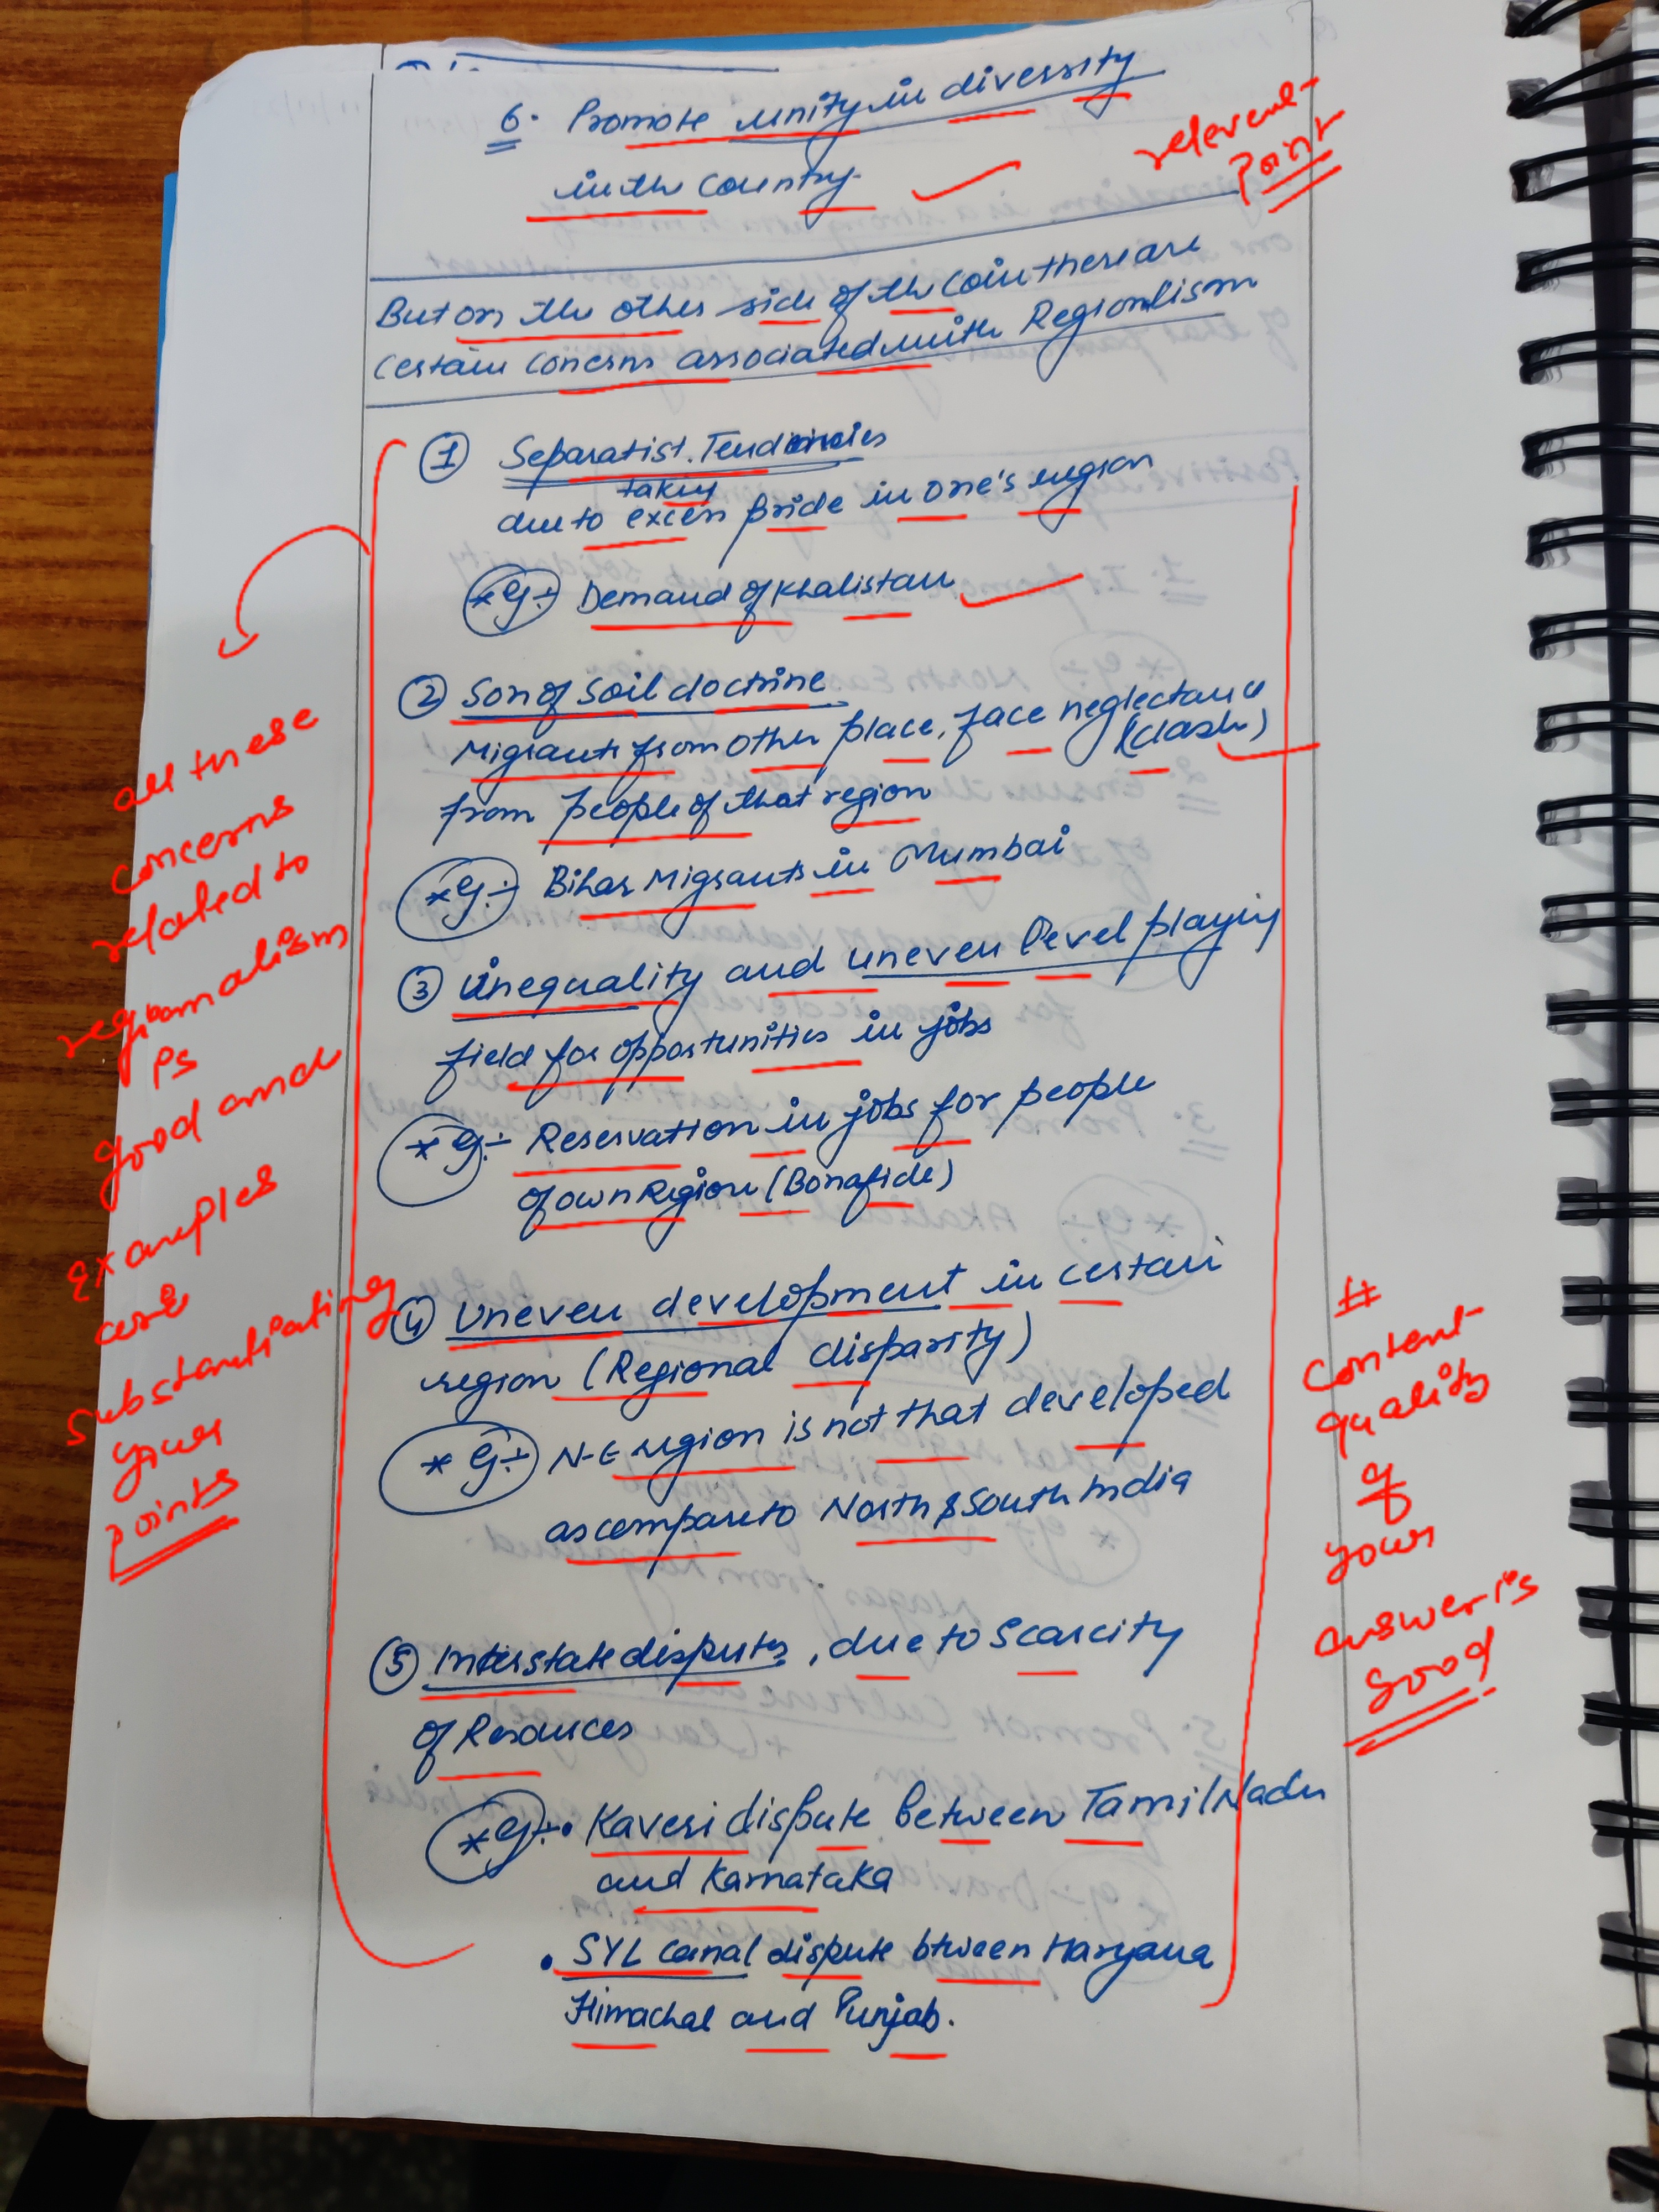 6. Promote unity in diversity
in the country.
relevent
Point
But on the other side of the coin there are
certain concerns associated with Regionlism
① Separatist Tendencies
taking
due to excess pride in one's region
* eg:- Demand of Khalistan
② Son of Soil doctrine
Migrants from other place, face neglectance
(clash)
from people of that region
* eg:- Bihar Migrants in Mumbai
③ Unequality and uneven level playing
field for opportunities in jobs
* eg:- Reservation in jobs for people
of own Region (Bonafide)
④ Uneven development in certain
region (Regional disparity)
* eg:- N-E region is not that developed
as compare to North & South India
⑤ Interstate disputes, due to Scarcity
of Resources
* eg:- • Kaveri dispute between Tamil Nadu
and Karnataka
• SYL canal dispute btween Haryana
Himachal and Punjab.
all these
concerns
related to
regionalism
is
good and
examples
are
substantiating
your
points
#
content
quality
of
your
answer is
good